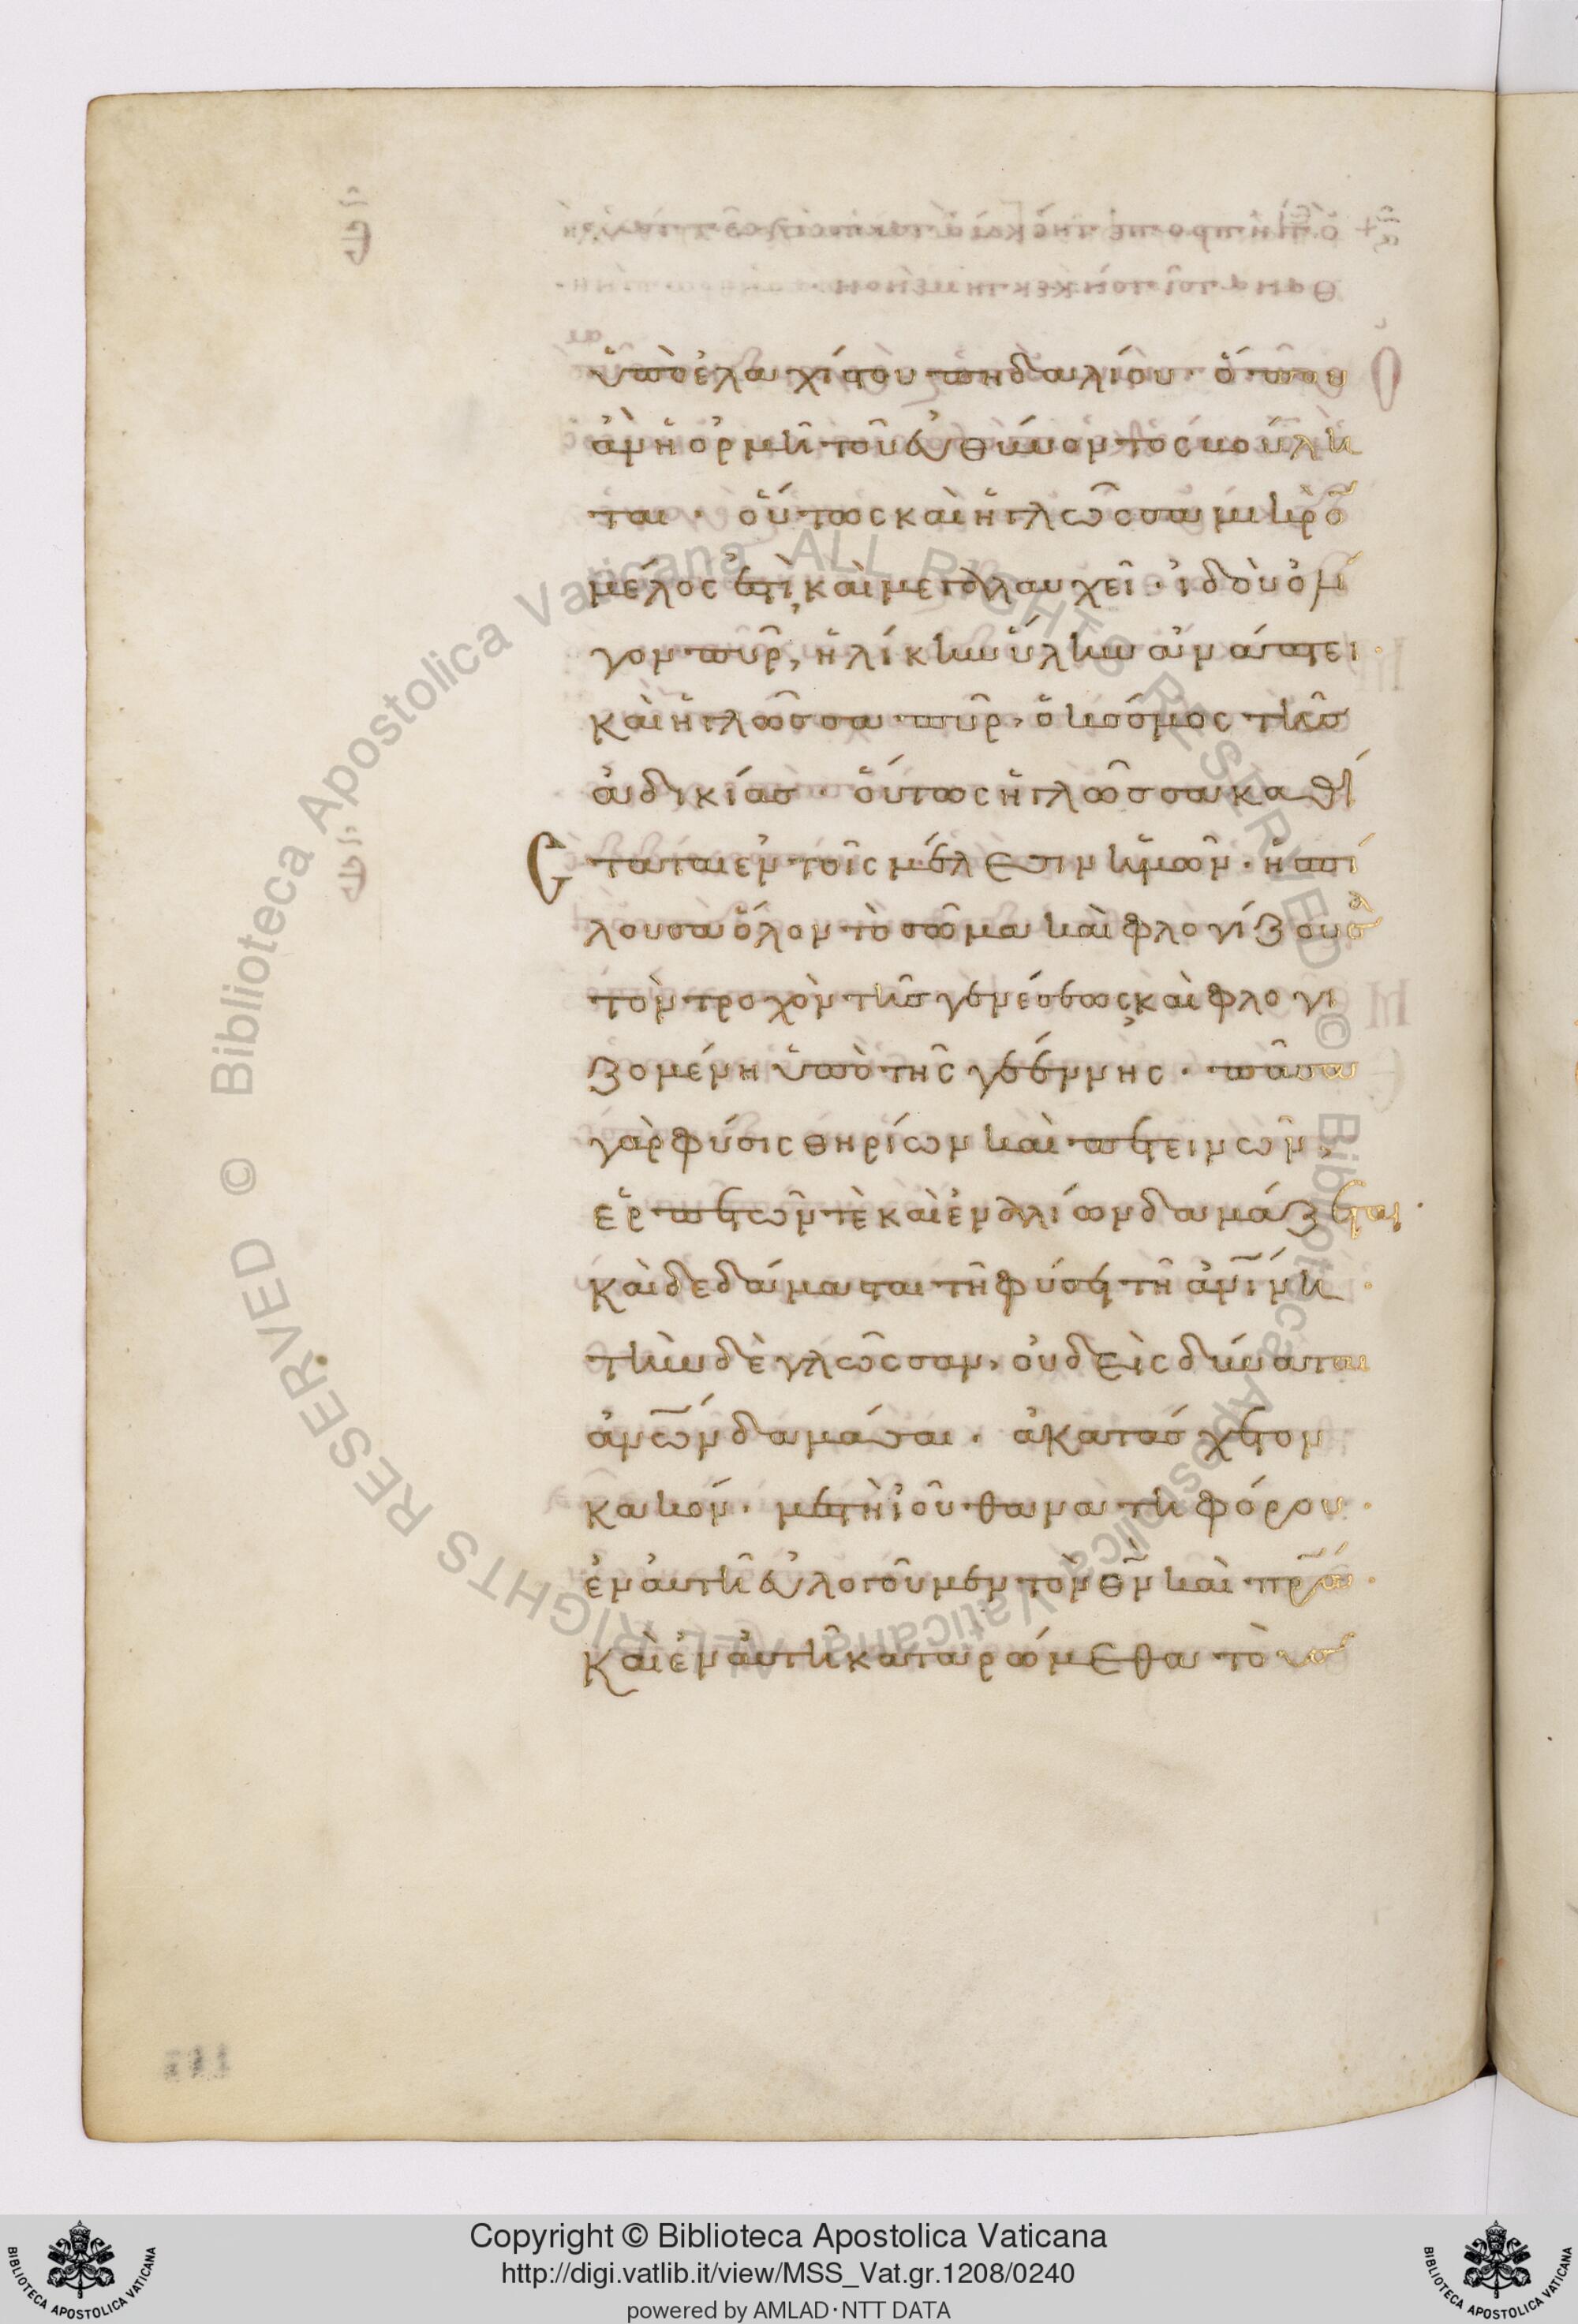 ὑπὸ ἐλαχίστου πηδαλίου· ὅπου
ἂν ἡ ὁρμὴ τοῦ εὐθύνοντος βούλη
ται· οὕτως καὶ ἡ γλῶσσα μικρὸ
μέλος ἐστὶ, καὶ μεγαλαυχεῖ· ἰδοὺ ὀλί
γον πῦρ, ἡλίκην ὕλην ἀνάπτει·
καὶ ἡ γλῶσσα πῦρ, ὁ κόσμος τῆς
ἀδικίας· οὕτως ἡ γλῶσσα καθί
σταται ἐν τοῖς μέλεσιν ἡμῶν· ἡ σπι
λοῦσα ὅλον τὸ σῶμα καὶ φλογίζουσα
τὸν τροχὸν τῆς γενέσεως, καὶ φλογι
ζομένη ὑπὸ τῆς γεέννης· πᾶσα
γὰρ φύσις θηρίων καὶ πετεινῶν,
ἑρπετῶν τὲ καὶ ἐναλίων δαμάζεται·
καὶ δεδάμασται τῆ φύσει τῆ ἀνίνη·
τὴν δὲ γλῶσσαν, οὐδεὶς δύναται
ἀνῶν δαμάσαι· ἀκατάσχετον
κακόν· μεστὴ ἰοῦ θανατηφόρου·
ἐν αὐτῆ εὐλογοῦμεν τὸν θν καὶ πρα·
καὶ ἐν αὐτῆ καταρώμεθα τοὺς
© Biblioteca Apostolica Vaticana ALL RIGHTS RESERVED © Biblioteca Apostolica Vaticana ALL RIGHTS RESERVED
Copyright © Biblioteca Apostolica Vaticana
http://digi.vatlib.it/view/MSS_Vat.gr.1208/0240
powered by AMLAD·NTT DATA
BIBLIOTECA APOSTOLICA VATICANA
BIBLIOTECA APOSTOLICA VATICANA